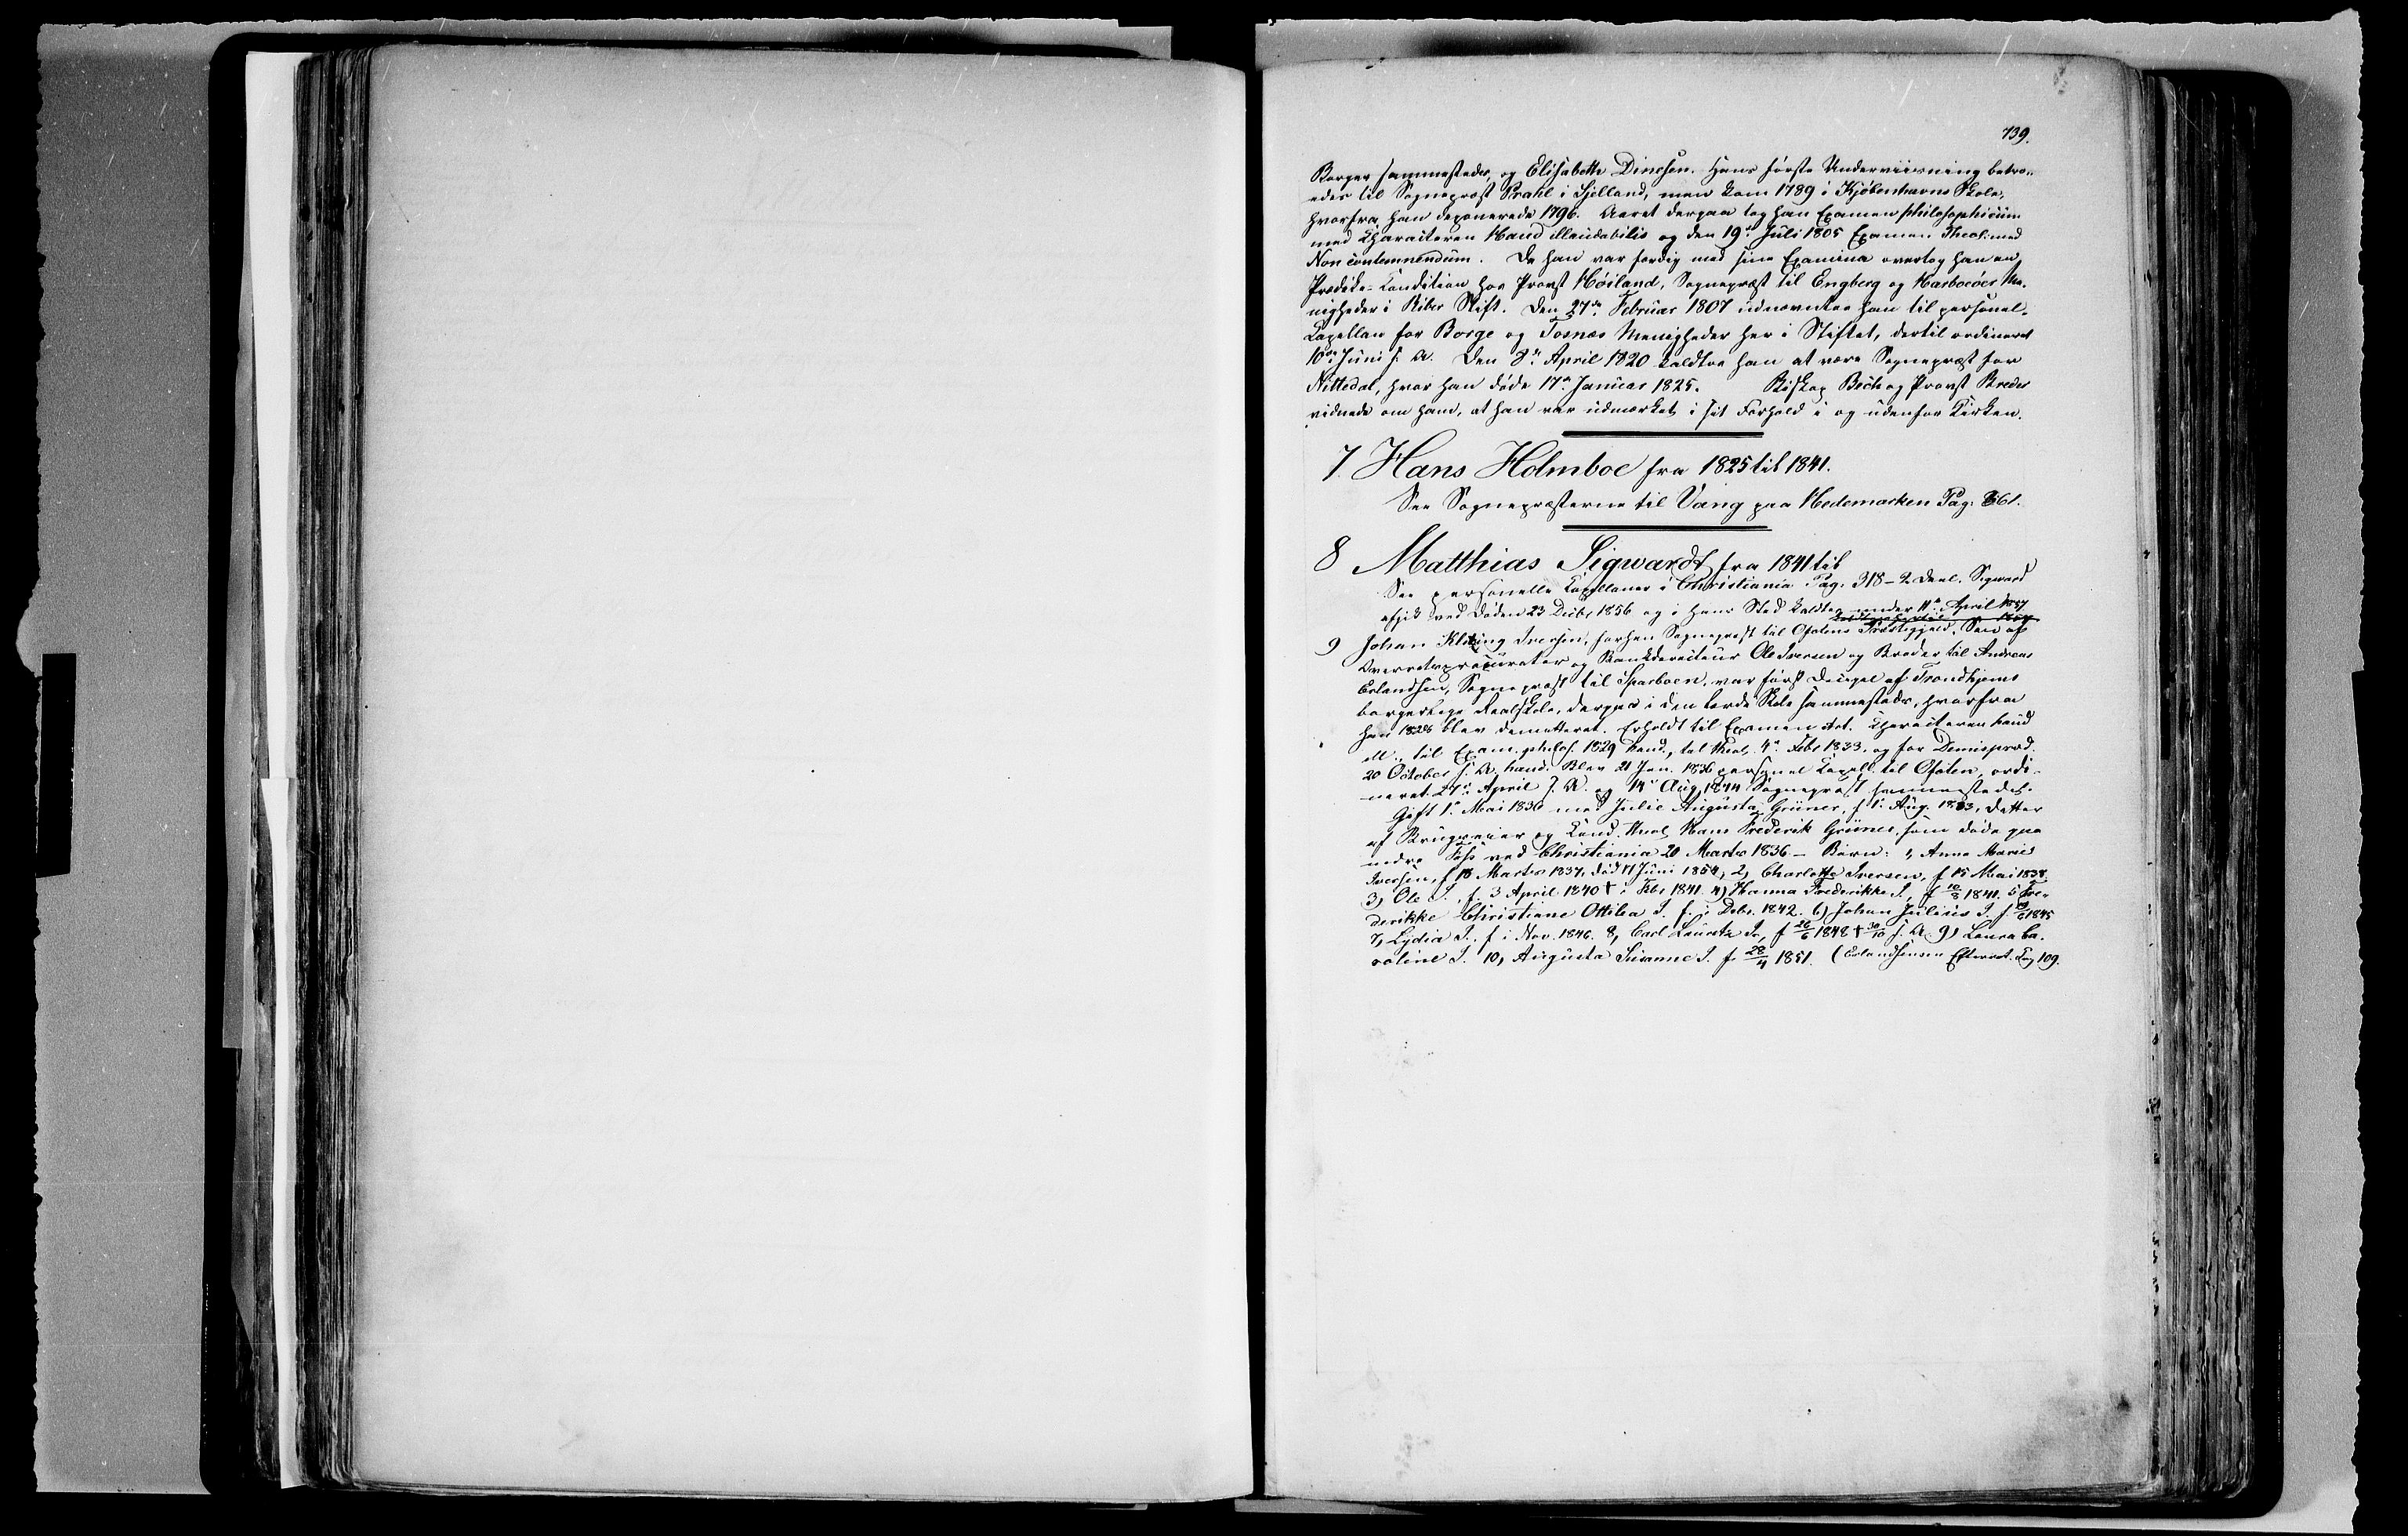 739.
Borger sammesteds, og Elisabeth Dinesen. Hans første Underviisning betro-
edes til Sognepræst Prahl i Sjelland, men kom 1789 i Kjøbenhavns Skole,
hvorfra han deponerede 1796. Aaret derpaa tog han Examen philosophicum
med Characteren Haud illaudabilis og den 19de Juli 1805 Examen Theol: med
Non contemnendum. Da han var færdig med sine Examina overtog han en
Prædike-Condition hos Provst Høiland, Sognepræst til Engberg og Harboøes Me-
nigheder i Ribes Stift. Den 27de Februar 1807 udnævntes han til personel-
Capellan for Borge og Torsnæs Menigheder her i Stiftet, dertil ordineret
10de Juni s. A. Den 8de April 1820 kaldtes han at være Sognepræst for
Nittedal, hvor han døde 17de Januar 1825. Biskop Bech og Provst Breder
vidnede om ham, at han var udmærket i sit Forhold i og udenfor Kirken.
7. Hans Holmboe fra 1825 til 1841.
See Sognepræsterne til Vang paa Hedemarken Pag. 361.
8 Matthias Sigwardt fra 1841 til
See personelle Capellaner i Christiania Pag. 318-2 Deel. Sigward
afgik ved Døden 23 Decbr 1856 og i hans Sted kaldtes under 11te April 1857
9 Johan Klæing Iversen, forhen Sognepræst til Ofotens Præstegjæld. Søn af
Overretsprocurator og Bankdirecteur Ole Iversen og Broder til Andreas
Erlandsen, Sognepræst til Sparboen, var først Discipel af Trondhjems
borgerlige Realskole, derpaa i den lærde Skole sammesteds, hvorfra
han 1828 blev demitteret. Erholdt til Examen Art. Characteren haud
ill., til Exam. philos. 1829 haud., til theol. 4de Febr 1833. og for Dimispræd.
20 October s. A. haud. Blev 21 Jan. 1836 personel Capell. til Ofoten, ordi-
neret 27de April s. A. og 14de Aug 1844 Sognepræst sammestedet.
Gift 1ste Mai 1836 med Julie Augusta Grüner, f 1ste Aug. 1813, Datter
af Brugseier og Cand. theol. Hans Frederik Grüner, som døde paa
nedre Foss ved Christiania 20 Marts 1836 - Børn: 1, Anna Marie
Iversen, f 18 Marts 1837, død 17 Juni 1854, 2, Charlotte Iversen, f 15 Mai 1838
3, Ole I., f. 3 April 1840 † i Febr 1841. 4) Hanna Frederikke I., f 10/8 1841. 5 Fre-
derikke Christiane Ottilia I. f. i Decbr. 1842. 6) Johan Julius I. f. 1845
7, Lydia I. f i Nov. 1846. 8, Carl Lauritz I., f 26/6 1848 † 30/10 s. A. 9) Laura Ca-
roline I. 10, Augusta Susanne I. f. 28/4 1851. (Erlandsens Efterret. Pag 109.